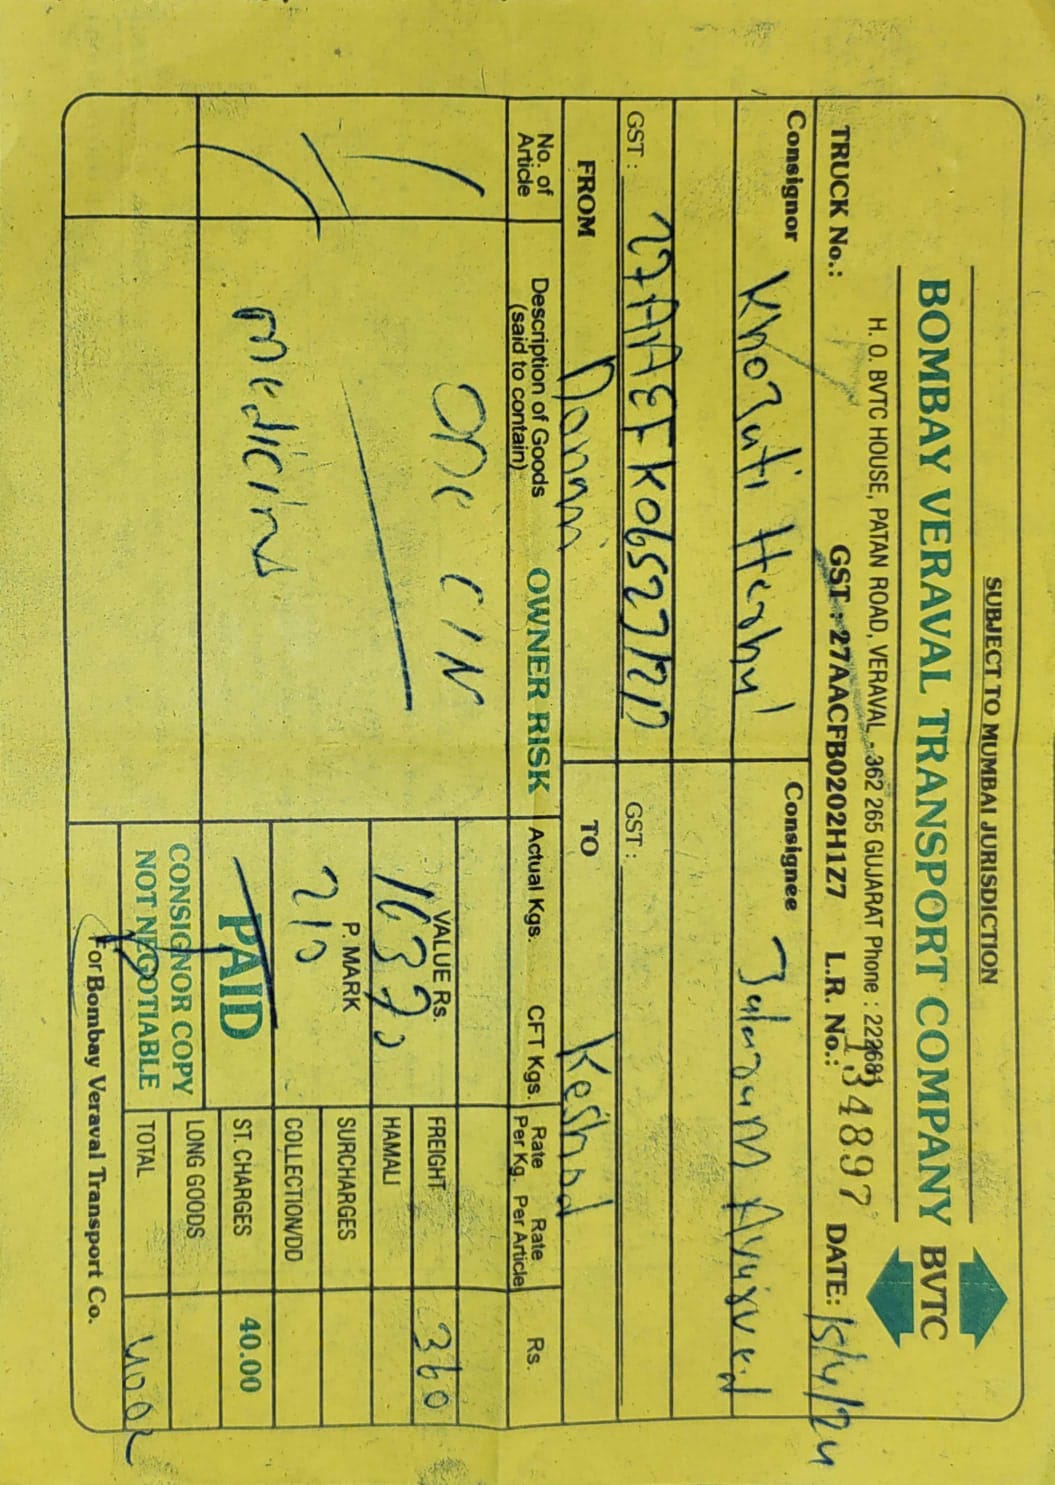 SUBJECT TO MUMBAI JURISDICTION
BOMBAY VERAVAL TRANSPORT COMPANY BVTC
H. O. BVTC HOUSE, PATAN ROAD, VERAVAL - 362 265 GUJARAT Phone : 222681
TRUCK No.: GST : 27AACFB0202H1Z7 L.R. No.: 134897 DATE: 15/4/24
Consignor Consignee
GST : GST :
FROM TO Keshod
No. of Article Description of Goods (said to contain) OWNER RISK Actual Kgs. CFT Kgs. Rate Per Kg. Rate Per Article Rs.
one
VALUE Rs. FREIGHT 360
HAMALI
P. MARK SURCHARGES
210 COLLECTION/DD
PAID ST. CHARGES 40.00
CONSIGNOR COPY LONG GOODS
NOT NEGOTIABLE TOTAL
For Bombay Veraval Transport Co.